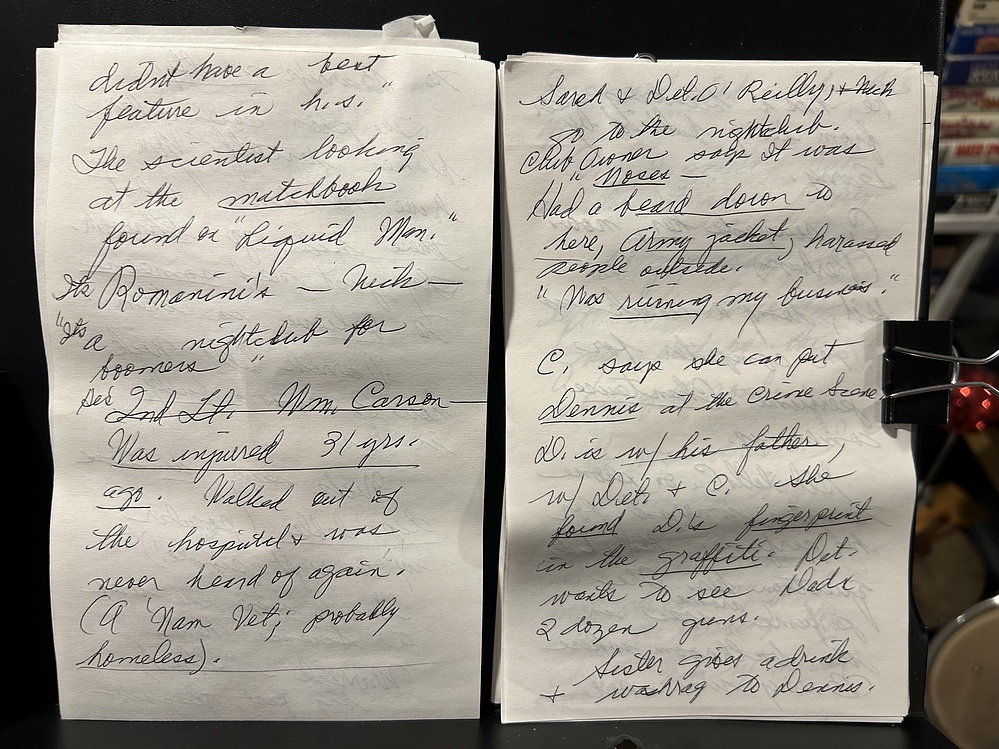 didnt have a best
feature in h.s."
The scientist looking
at the matchbook
found on "Liquid Man."
Its Romanini's – Nick –
"It's a nightclub for
boomers"
2nd Lt. Wm. Carson –
Was injured 31 yrs.
ago. Walked out of
the hospital & was
never heard of again.
(A 'Nam Vet; probably
homeless).
Sarah & Det. O'Reilly, & Nick
go to the nightclub.
Club Owner says It was
"Moses –
Had a beard down to
here, Army jacket, harassed
people outside.
"Was ruining my business."
C. says she can put
Dennis at the Crime Scene
D. is w/ his father,
w/ Dets & C. She
found D.'s fingerprint
in the graffiti. Det.
wants to see Dad's
2 dozen guns.
Sister gives a drink
+ washrag to Dennis.